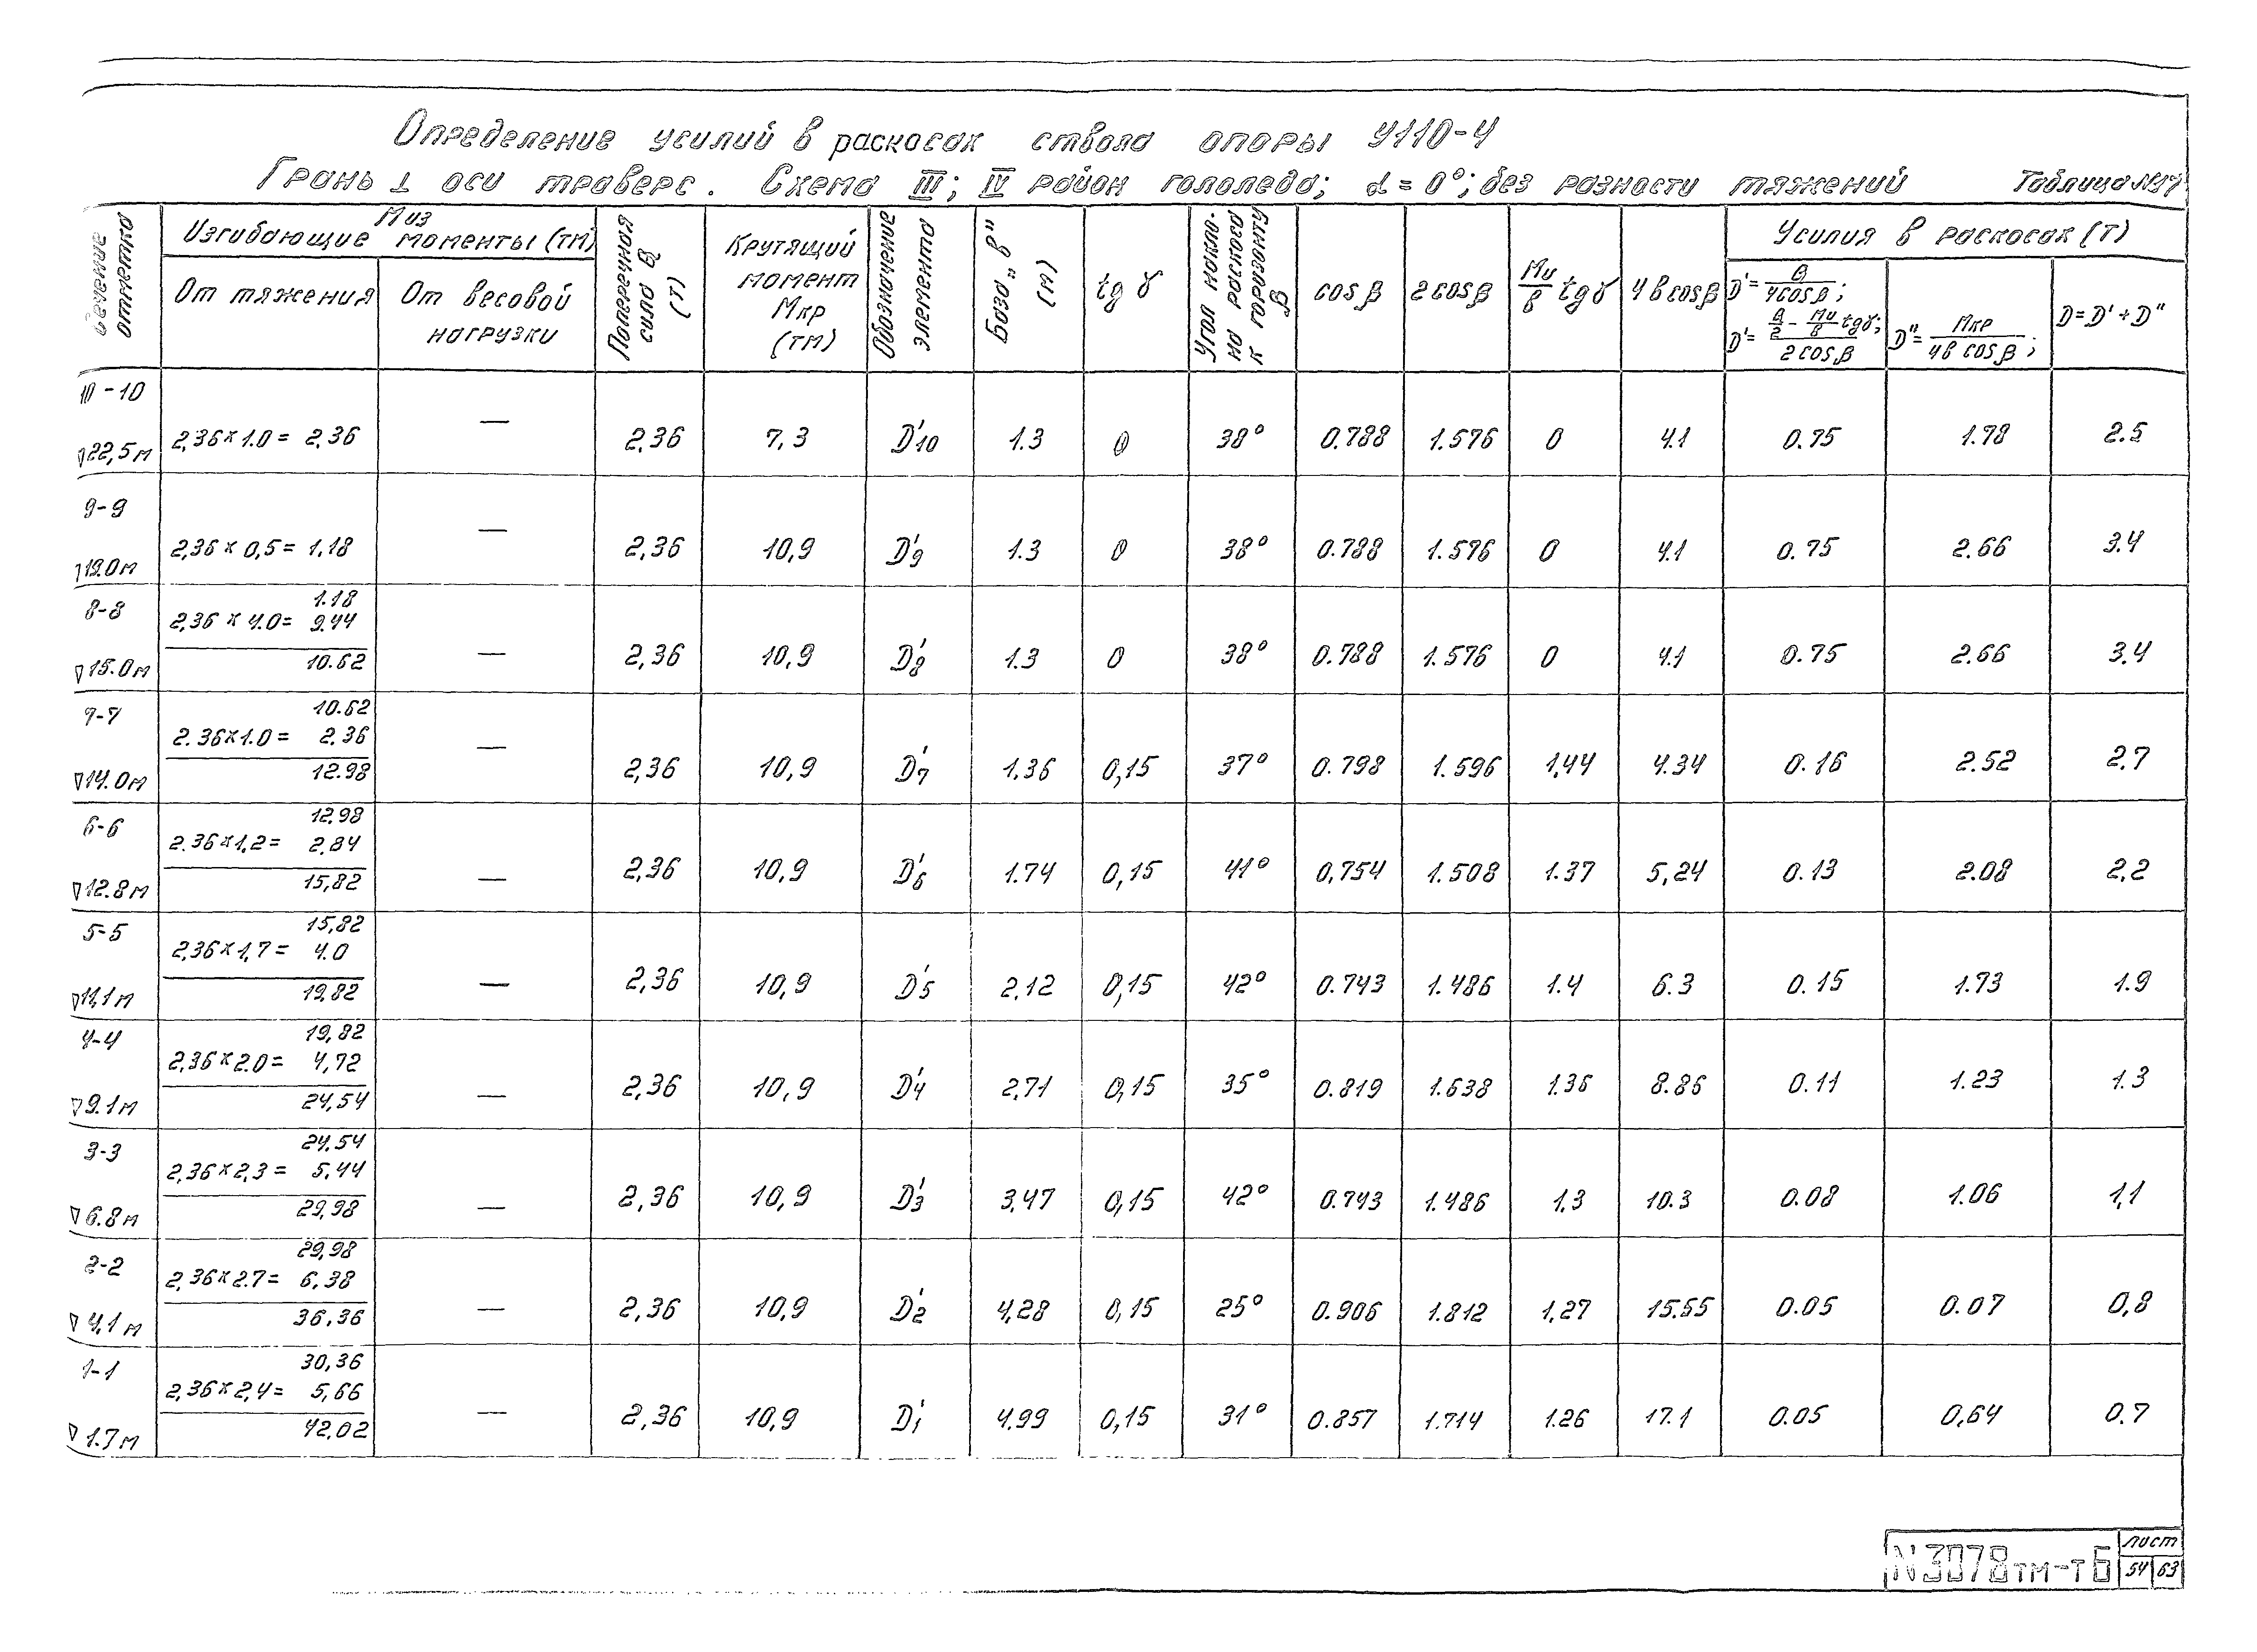 Определение усилий в раскосах ствола опоры У110-4
Грань ⊥ оси траверс. Схема III; IV район гололеда; α = 0°; без разности тяжений Таблица №17
Сечение отметка
Изгибающие Миз моменты (тм)
От тяжения
От весовой нагрузки
Поперечная сила Q (т)
Крутящий момент Мкр (тм)
Обозначение элемента
База „в" (м)
tg γ
Угол наклона раскоса к горизонту β
cos β
2 cos β
Ми/в tg γ
4 в cos β
Усилия в раскосах (т)
D' = Q/4cos β;
D' = (Q/2 - Ми/в tg γ)/2 cos β;
D" = Мкр/4в cos β;
D = D' + D"
10-10
▽22,5м 2,36×1.0 = 2,36 — 2,36 7,3 D'10 1.3 0 38° 0.788 1.576 0 4.1 0.75 1.78 2.5
9-9
▽19.0м 2,36×0,5 = 1,18 — 2,36 10,9 D'9 1.3 0 38° 0.788 1.576 0 4.1 0.75 2.66 3.4
8-8 1.18
2,36×4.0 = 9.44
▽15.0м 10.62 — 2,36 10,9 D'8 1.3 0 38° 0.788 1.576 0 4.1 0.75 2.66 3.4
7-7 10.62
2.36×1.0 = 2.36
▽14.0м 12.98 — 2,36 10,9 D'7 1.36 0,15 37° 0.798 1.596 1,44 4.34 0.16 2.52 2.7
6-6 12.98
2.36×1,2 = 2,84
▽12.8м 15,82 — 2,36 10,9 D'6 1.74 0,15 41° 0,754 1.508 1.37 5,24 0.13 2.08 2,2
5-5 15,82
2,36×1,7 = 4.0
▽11,1м 19,82 — 2,36 10,9 D'5 2,12 0,15 42° 0.743 1.486 1.4 6.3 0.15 1.73 1.9
4-4 19,82
2,36×2.0 = 4,72
▽9.1м 24,54 — 2,36 10,9 D'4 2,71 0,15 35° 0.819 1.638 1.36 8.86 0.11 1.23 1.3
3-3 24,54
2,36×2,3 = 5,44
▽6.8м 29,98 — 2,36 10,9 D'3 3,47 0,15 42° 0.743 1.486 1,3 10.3 0.08 1.06 1,1
2-2 29,98
2,36×2.7 = 6,38
▽4,1м 36,36 — 2,36 10,9 D'2 4,28 0,15 25° 0.906 1.812 1,27 15.55 0.05 0.07 0,8
1-1 30,36
2,36×2,4 = 5,66
▽1.7м 42,02 — 2,36 10,9 D'1 4,99 0,15 31° 0.857 1.714 1.26 17.1 0.05 0,64 0.7
N3078тм-т6
лист
54 63